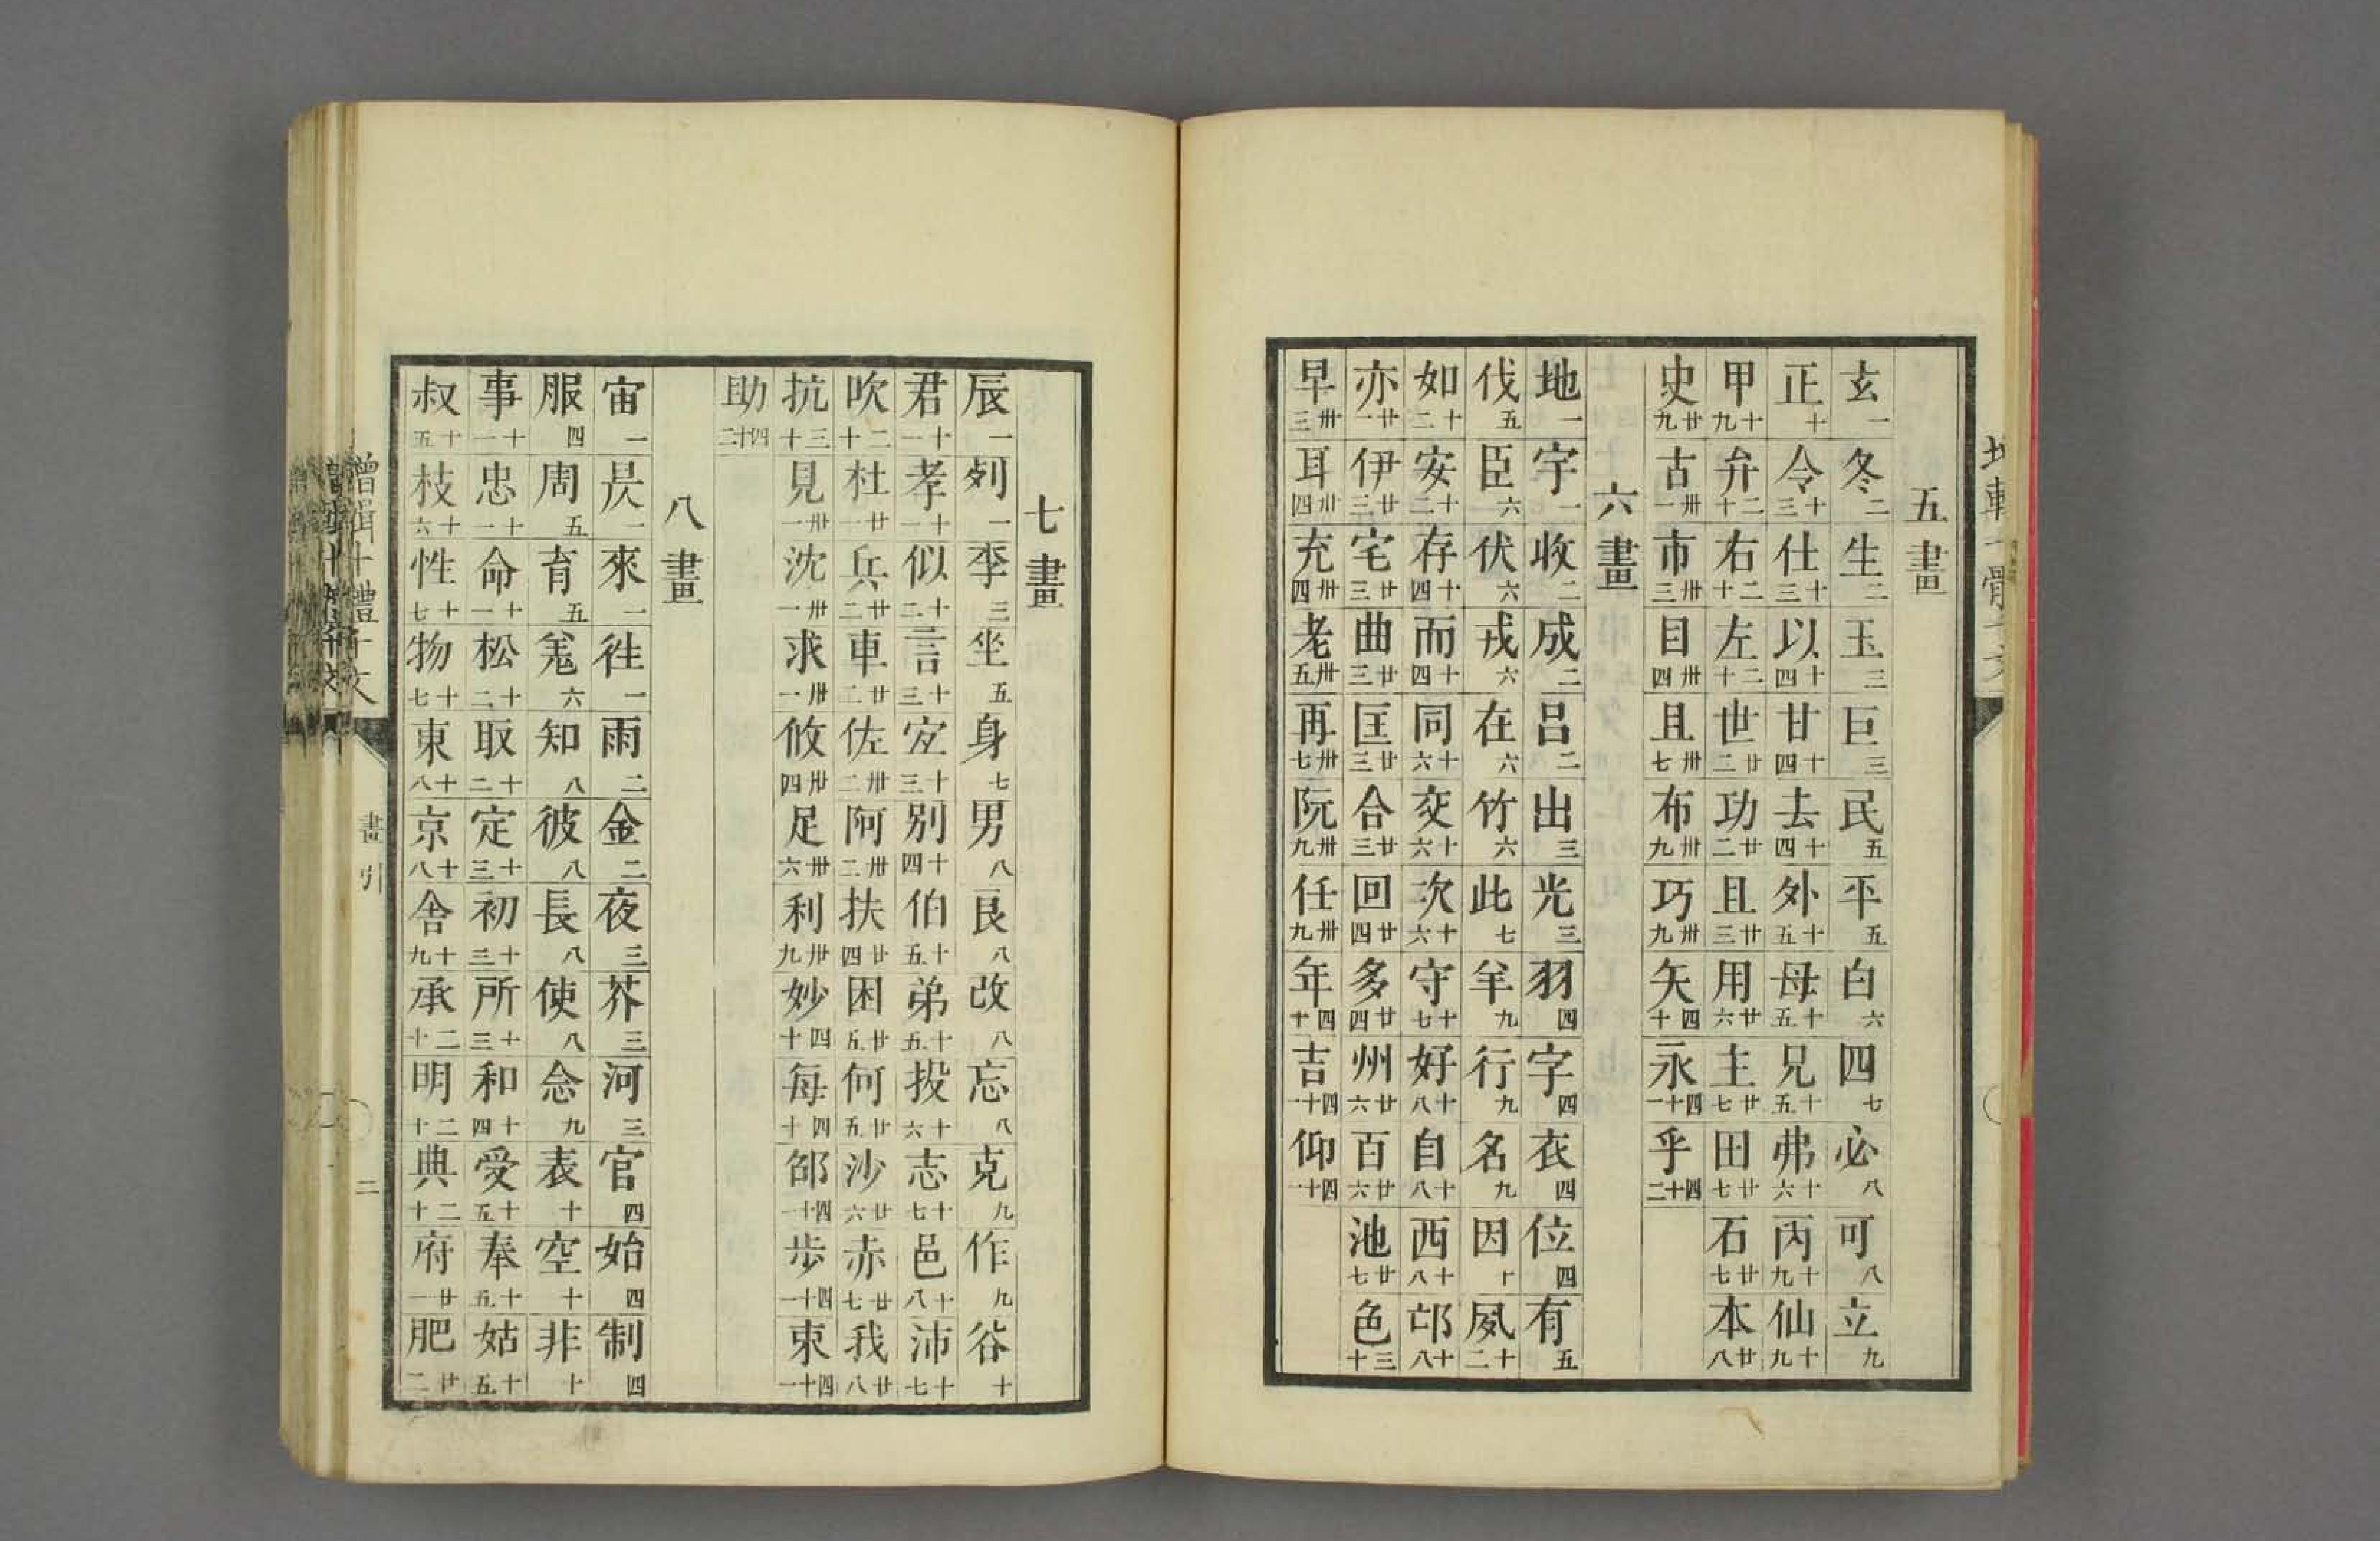 五畫
玄一冬二生二玉三巨三民五平五白六四七必八可八立九
正十令十三仕十三以十四甘十四去十四外十五母十五兄十五弗十六丙十九仙十九
甲十九弁二十右二十左二十世廿二功廿二且廿三用廿六主廿七田廿七石廿七本廿八
史廿九古卅一市卅三目卅四且卅七布卅九巧卅九矢四十永四十一乎四十二
六畫
地一宇一收二成二吕二出三光三羽四字四衣四位四有五
伐五臣六伏六戎六在六竹六此七羊九行九名九因十夙十二
如十二安十二存十四而十四同十六交十六次十六守十七好十八自十八西十八邙十八
亦廿一伊廿三宅廿三曲廿三匡廿三合廿三回廿四多廿四州廿六百廿六池廿七色三十
早卅三耳卅四充卅四老卅五再卅七阮卅九任卅九年四十吉四十一仰四十一
七畫
辰一列一李三坐五身七男八良八改八忘八克九作九谷十
君十一孝十一似十二言十三宐十三別十四伯十五弟十五投十六志十七邑十八沛十七
吹二十杜廿一兵廿二車廿二佐卅二阿卅二扶廿四困廿五何廿五沙廿六赤廿七我廿八
抗三十見卅一沈卅一求卅一攸卅四足卅六利卅九妙四十每四十邵四十一步四十一束四十一
助四十二
八畫
宙一昃一來一往一雨二金二夜三芥三河三官四始四制四
服四周五育五羌六知八彼八長八使八念九表十空十非十
事十一忠十一命十一松十二取十二定十三初十三所十三和十四受十五奉十五姑十五
叔十五枝十六性十七物十七東十八京十八舍十九承二十明二十典二十府廿一肥廿二
增輯十體千文 畫引 二